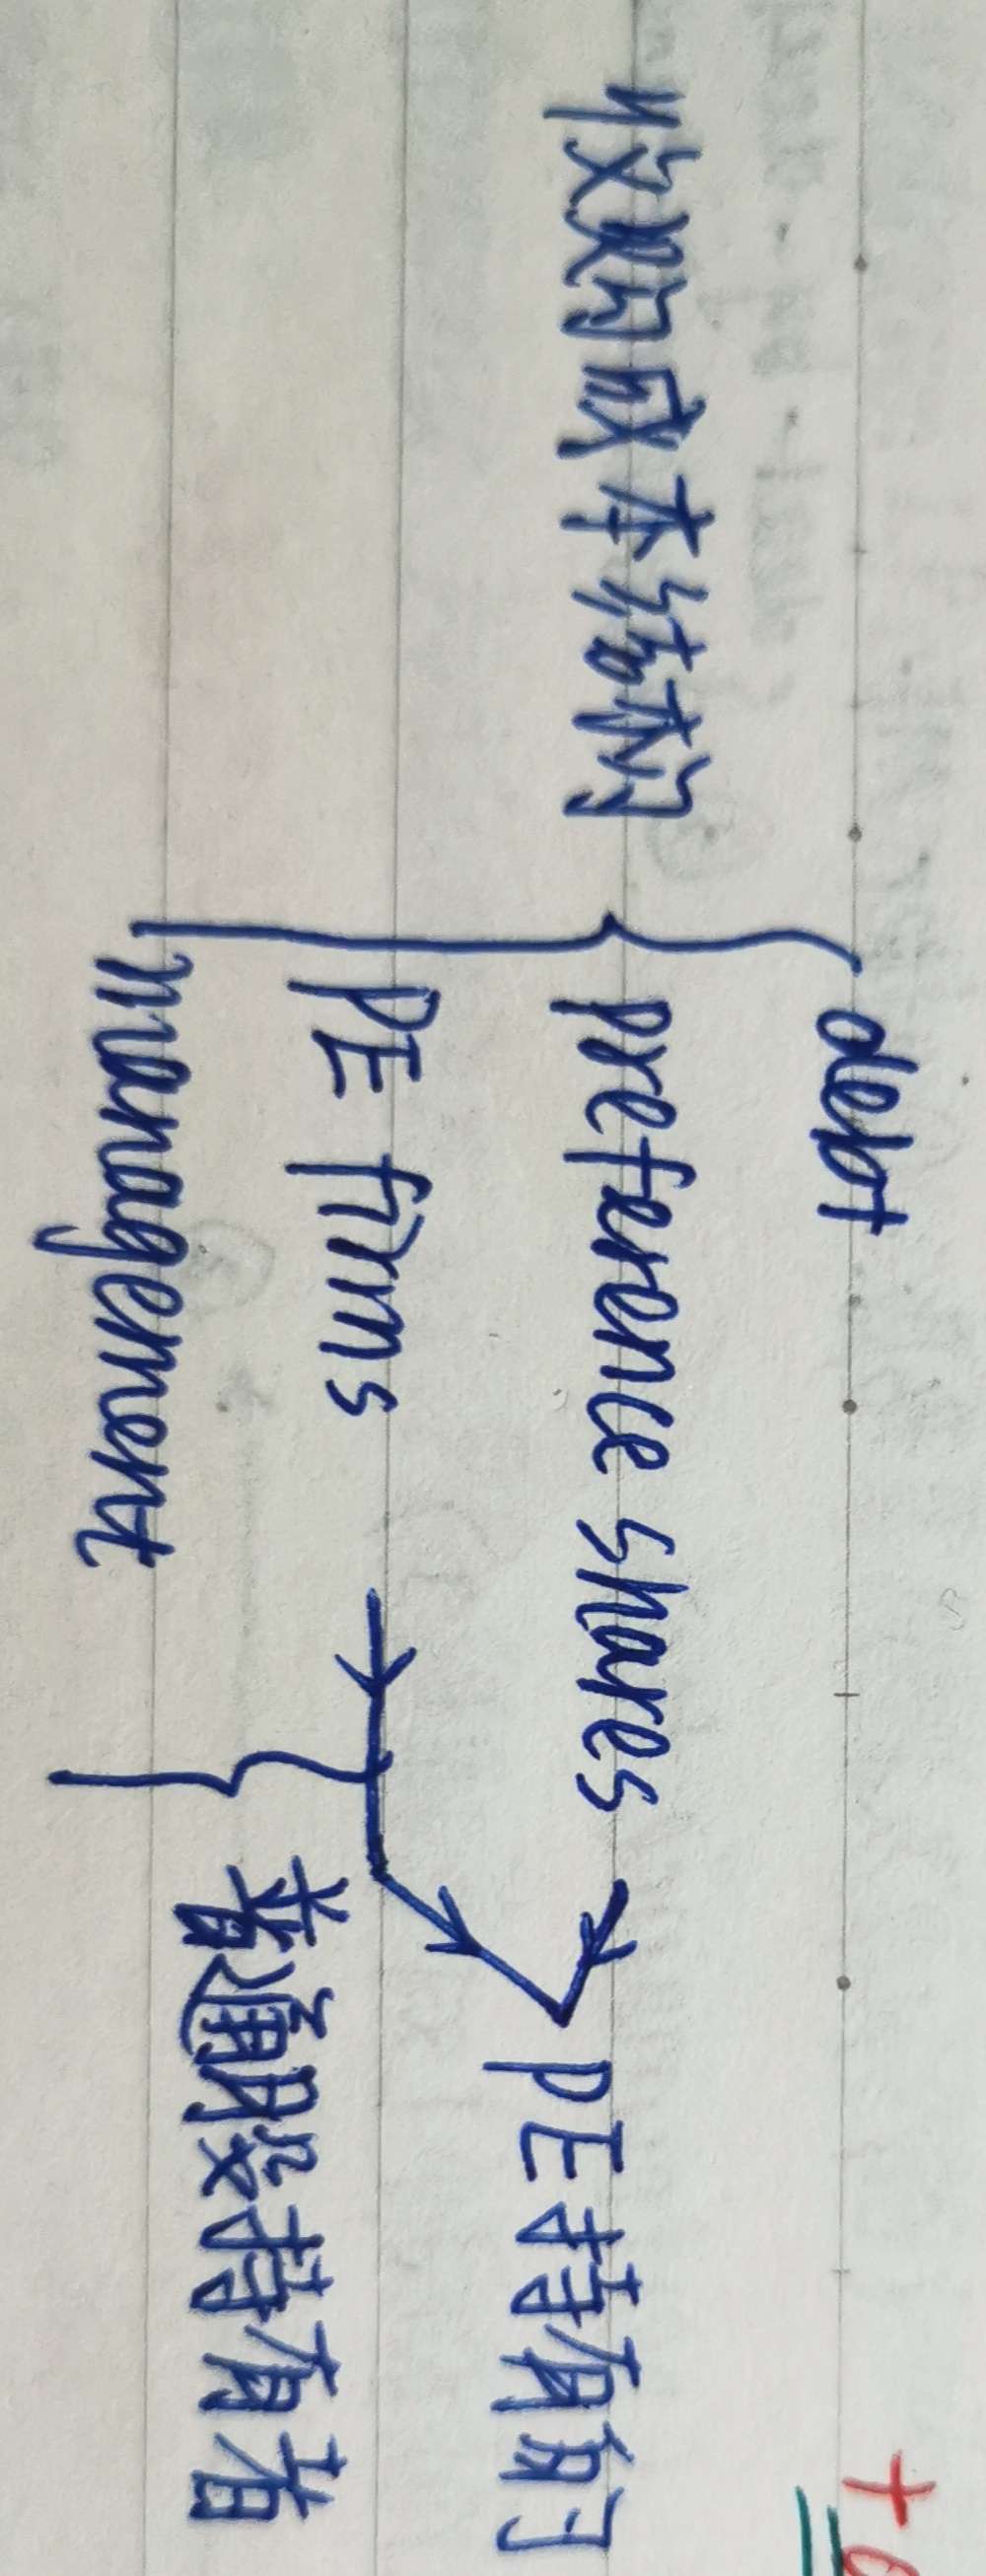 debt
收购成本结构
preference shares
PE持有的
PE firms
普通股持有者
management
+